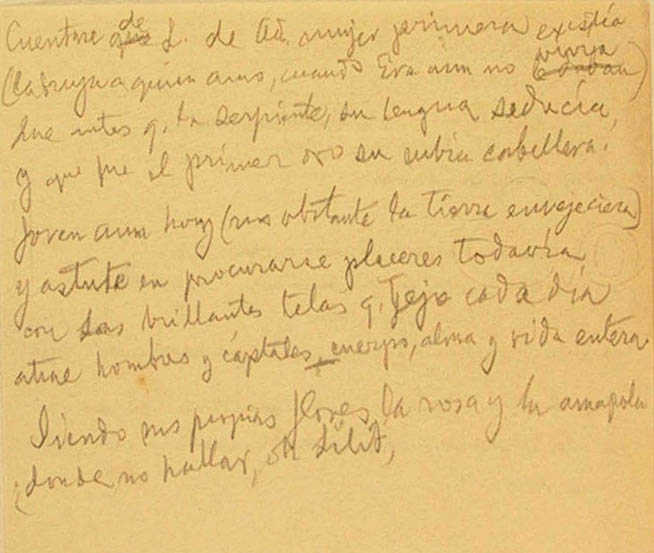 Cuentase de L. de Ad. mujer primera existía
(la bruja a quien amo, cuando Eva aun no vivía)
que antes q. la serpiente, su lengua seducía,
y que fue el primer oro su rubia cabellera.
Joven aun hoy (no obstante la tierra envejeciera)
y astuta en procurarse placeres todavía
con las brillantes telas q. teje cada día
atrae hombres y cáptales cuerpo, alma y vida entera.
Siendo sus propias flores, la rosa y la amapola
¿donde no hallar, oh Lilit,